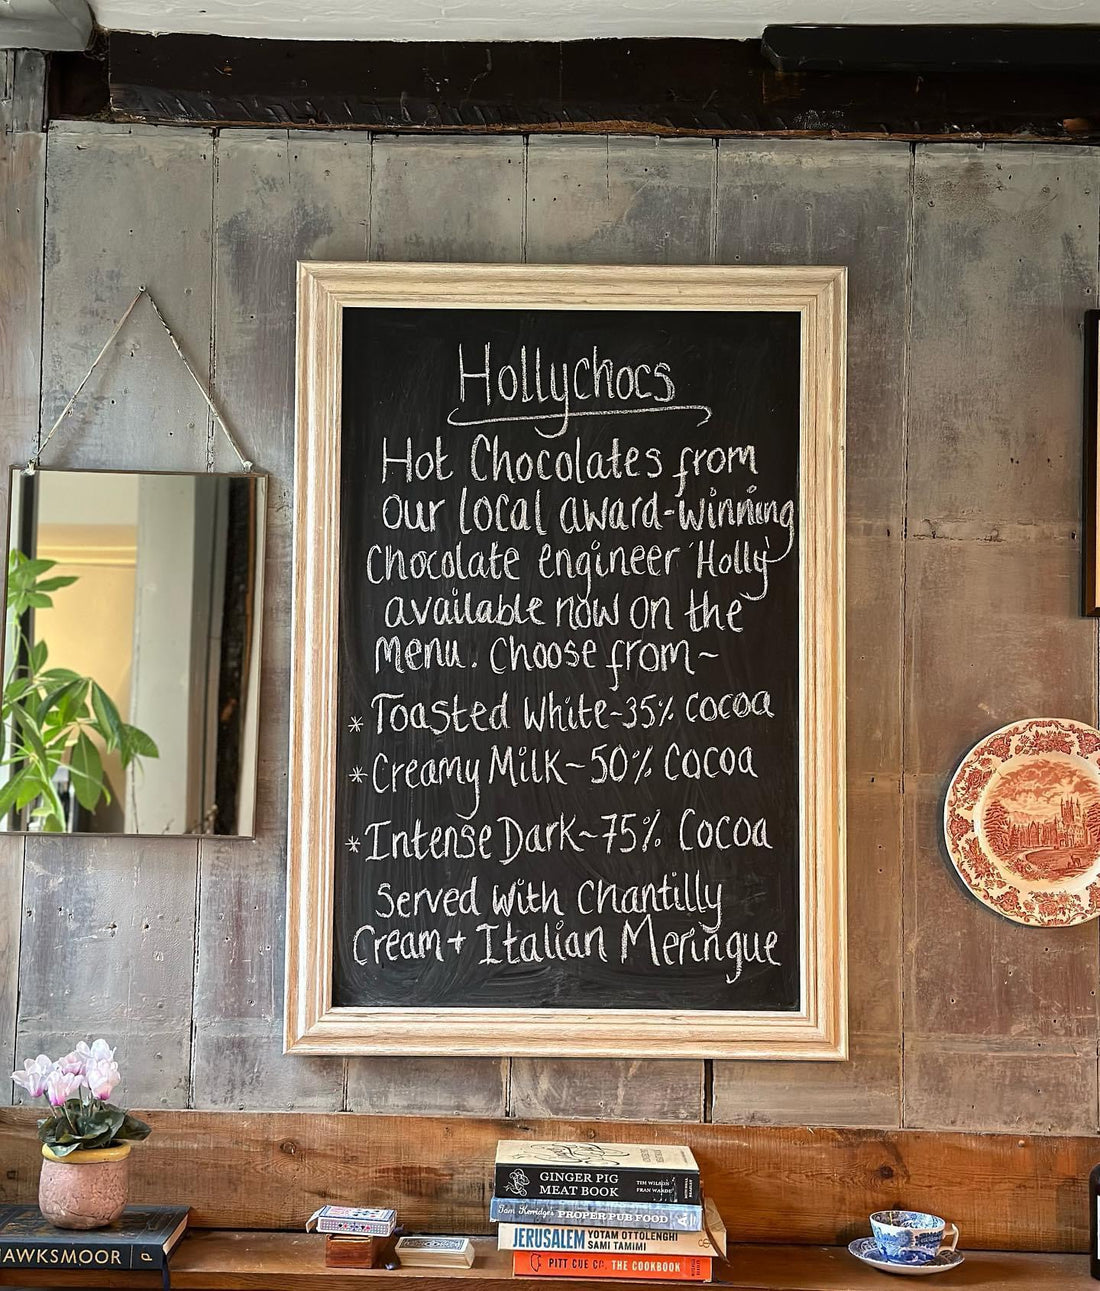 Hollychocs
Hot Chocolates from
our local award-winning
Chocolate engineer 'Holly'
available now on the
menu. Choose from~
* Toasted White~35% cocoa
* Creamy Milk~50% Cocoa
* Intense Dark~75% Cocoa
Served with Chantilly
Cream + Italian Meringue
GINGER PIG
MEAT BOOK
TIM WILSON
FRAN WARDE
Tom Kerridge's PROPER PUB FOOD
JERUSALEM YOTAM OTTOLENGHI
SAMI TAMIMI
PITT CUE CO. THE COOKBOOK
HAWKSMOOR